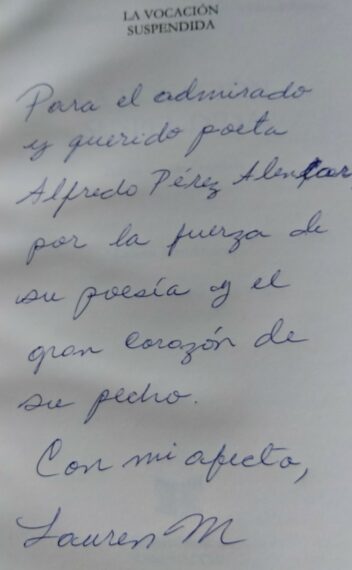 LA VOCACIÓN
SUSPENDIDA
Para el admirado
y querido poeta
Alfredo Pérez Alencar
por la fuerza de
su poesía y el
gran corazón de
su pecho.
Con mi afecto,
Lauren M